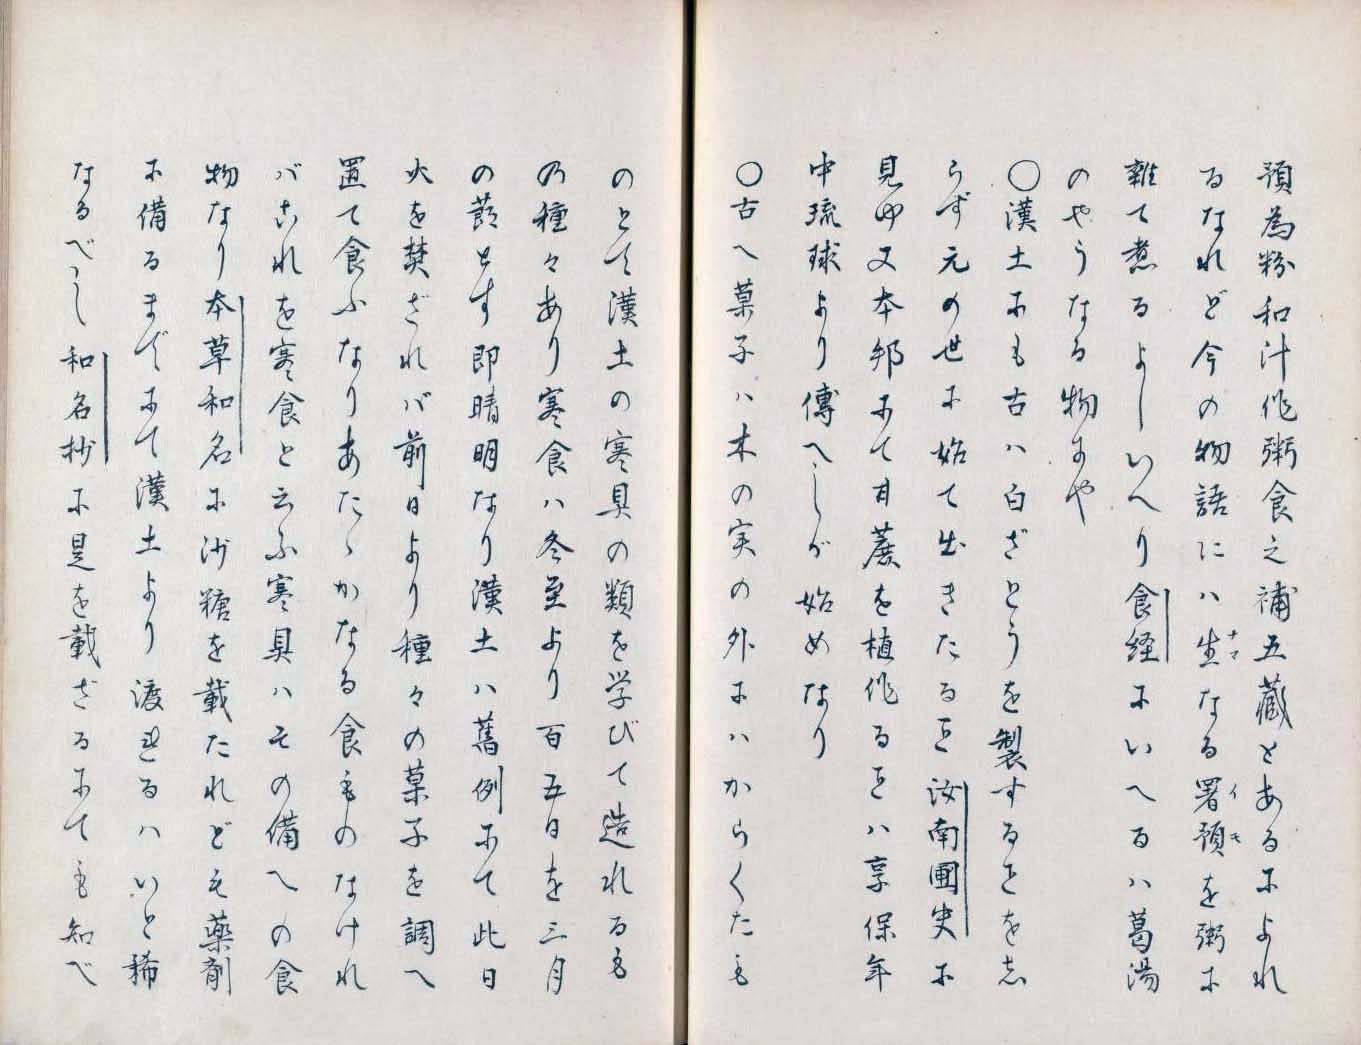 預為粉和汁作粥食之補五蔵とあるによれ
るなれど今の物語にハ生なる署預を粥に
雑て煮るよしいへり食経にいへるハ葛湯
のやうなる物にや
〇漢土にも古ハ白ざとうを製するヿを志
らず元の世に始て出きたるヿ汝南圃史に
見ゆ又本邦にて甘蔗を植作るヿハ享保年
中琉球より傳へしが始めなり
〇古へ菓子ハ木の実の外にハからくたも
のとて漢土の寒具の類を学びて造れるも
の種々あり寒食ハ冬至より百五日を三月
の節とす即晴明なり漢土ハ舊例にて此日
火を焚ざれバ前日より種々の菓子を調へ
置て食ふなりあたゝかなる食ものなけれ
バこれを寒食と云ふ寒具ハその備への食
物なり本草和名に沙糖を載たれども薬剤
に備るまでにて漢土より渡れるハいと稀
なるべし和名抄に是を載ざるにても知べ
ナマ
イモ